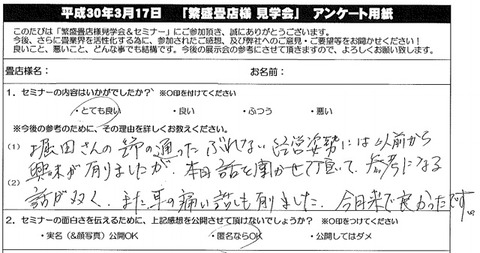 平成30年3月17日 「繁盛畳店様 見学会」 アンケート用紙
このたびは「繁盛畳店様見学会&セミナー」にご参加頂き、誠にありがとうございます。
今後、さらに畳業界を活性化する為に、参加されたご感想、及び弊社へのご意見・ご要望等をお聞かせください!
良いこと、悪いこと、どんな事でも結構です。今後の展示会の参考にさせて頂きますので、よろしくお願い致します。
畳店様名: お名前:
1. セミナーの内容はいかがでしたか? ※○印を付けてください
・とても良い ・良い ・ふつう ・悪い
※今後の参考のために、その理由を詳しくお教えください。
(1) 堀田さんの筋の通ったぶれない経営姿勢には以前から
興味が有りましたが、本日話を聞かせて頂いて、参考になる
(2)
話が多く、また耳の痛い話しも有りました。今日来て良かったです。
2. セミナーの面白さを伝えるために、上記感想を公開させて頂けないでしょうか? ※○印をつけてください
・実名(&顔写真)公開OK ・匿名ならOK ・公開してはダメ